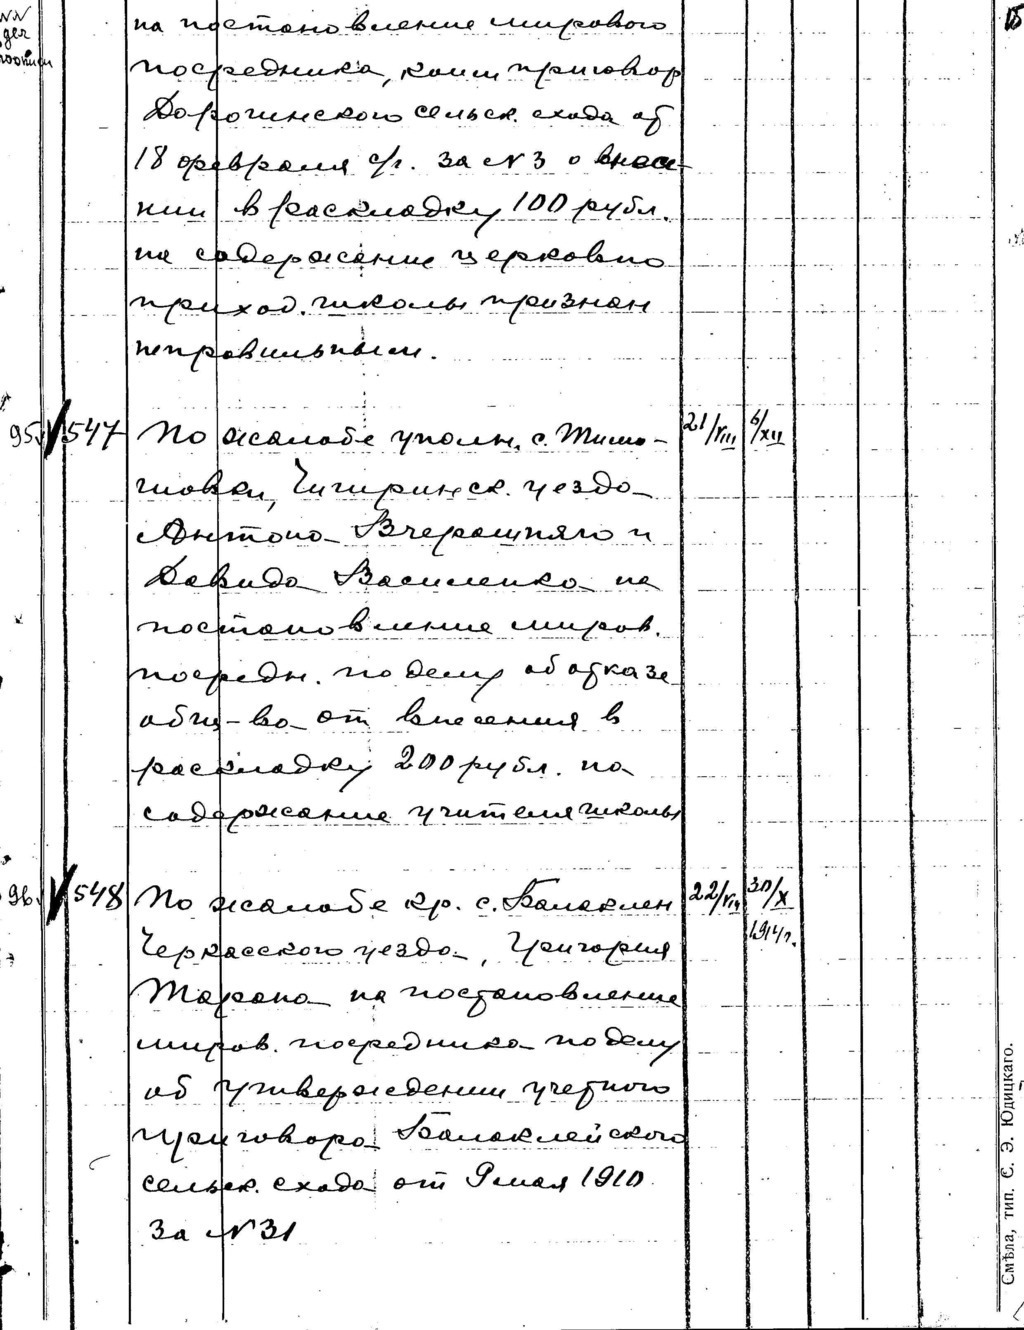 на постановление мирового
посредника, коим приговор
Дорогинского сельск. схода от
18 февраля с/г. за N 3 о внесе-
нии в раскладку 100 рубл.
на содержание церковно
приход. школы признан
неправильным.
95 547 По жалобе уполн. с. Тимо-
шовки, Чигиринск. уезда 21/VIII 6/XII
Антона Вчерашняго и
Давида Василенко на
постановление миров.
посредн. по делу об отказе
общ-ва от внесения в
раскладку 200 рубл. на
содержание учителя школы
96 548 По жалобе кр. с. Балаклеи 22/VIII 30/X
Черкасского уезда, Григория 1914 г.
Тарана на постановление
миров. посредника по делу
об утверждении учетного
приговора Балаклейского
сельск. схода от 9 мая 1910
за N 31
Смѣла, тип. С. Э. Юдицкаго.